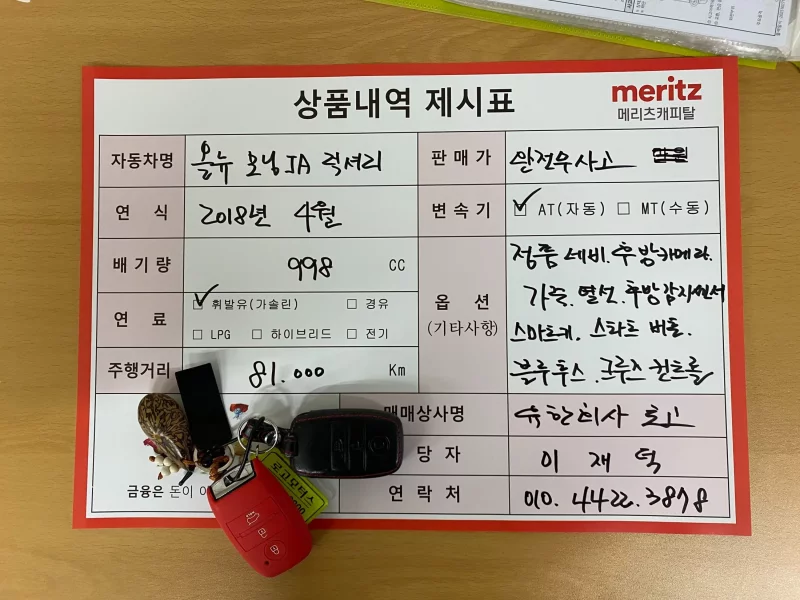 상품내역 제시표
meritz
메리츠캐피탈
자동차명 올뉴 모닝JA 럭셔리
판매가 완전무사고
연 식 2018년 4월
변속기 ✓ AT(자동) □ MT(수동)
배기량 998 CC
연 료 ✓ 휘발유(가솔린) □ 경유
□ LPG □ 하이브리드 □ 전기
주행거리 81.000 Km
옵 션
(기타사항)
정품 네비. 후방카메라.
가죽. 열선. 후방감지센서
스마트키. 스타트 버튼.
블루투스. 크루즈 컨트롤
매매상사명 유한회사 로고
당 자 이 재 덕
연 락 처 010. 4422. 3878
금융은 돈이 아
로고모터스